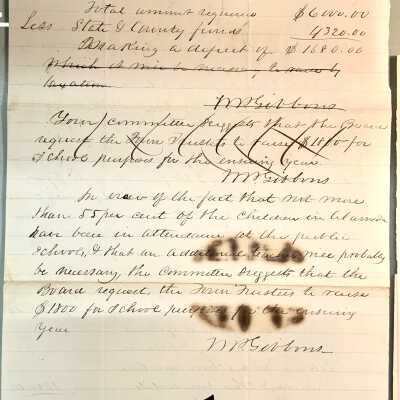 Total amount required $6000.00
Less State & County funds 4320.00
Making a deficit of $1680.00
Which it will be necessary to raise by
taxation
W P Gibbons
Your committee suggests that the Board
request the Town Trustees to raise $1800 for
School purposes for the ensuing year
W P Gibbons
In view of the fact that not more
than 55 per cent of the children in Alameda
have been in attendance at the public
schools, & that an additional will probably
be necessary, the Committee suggests that the
Board request the Town Trustees to raise
$1800 for School purposes for the ensuing
year
W P Gibbons